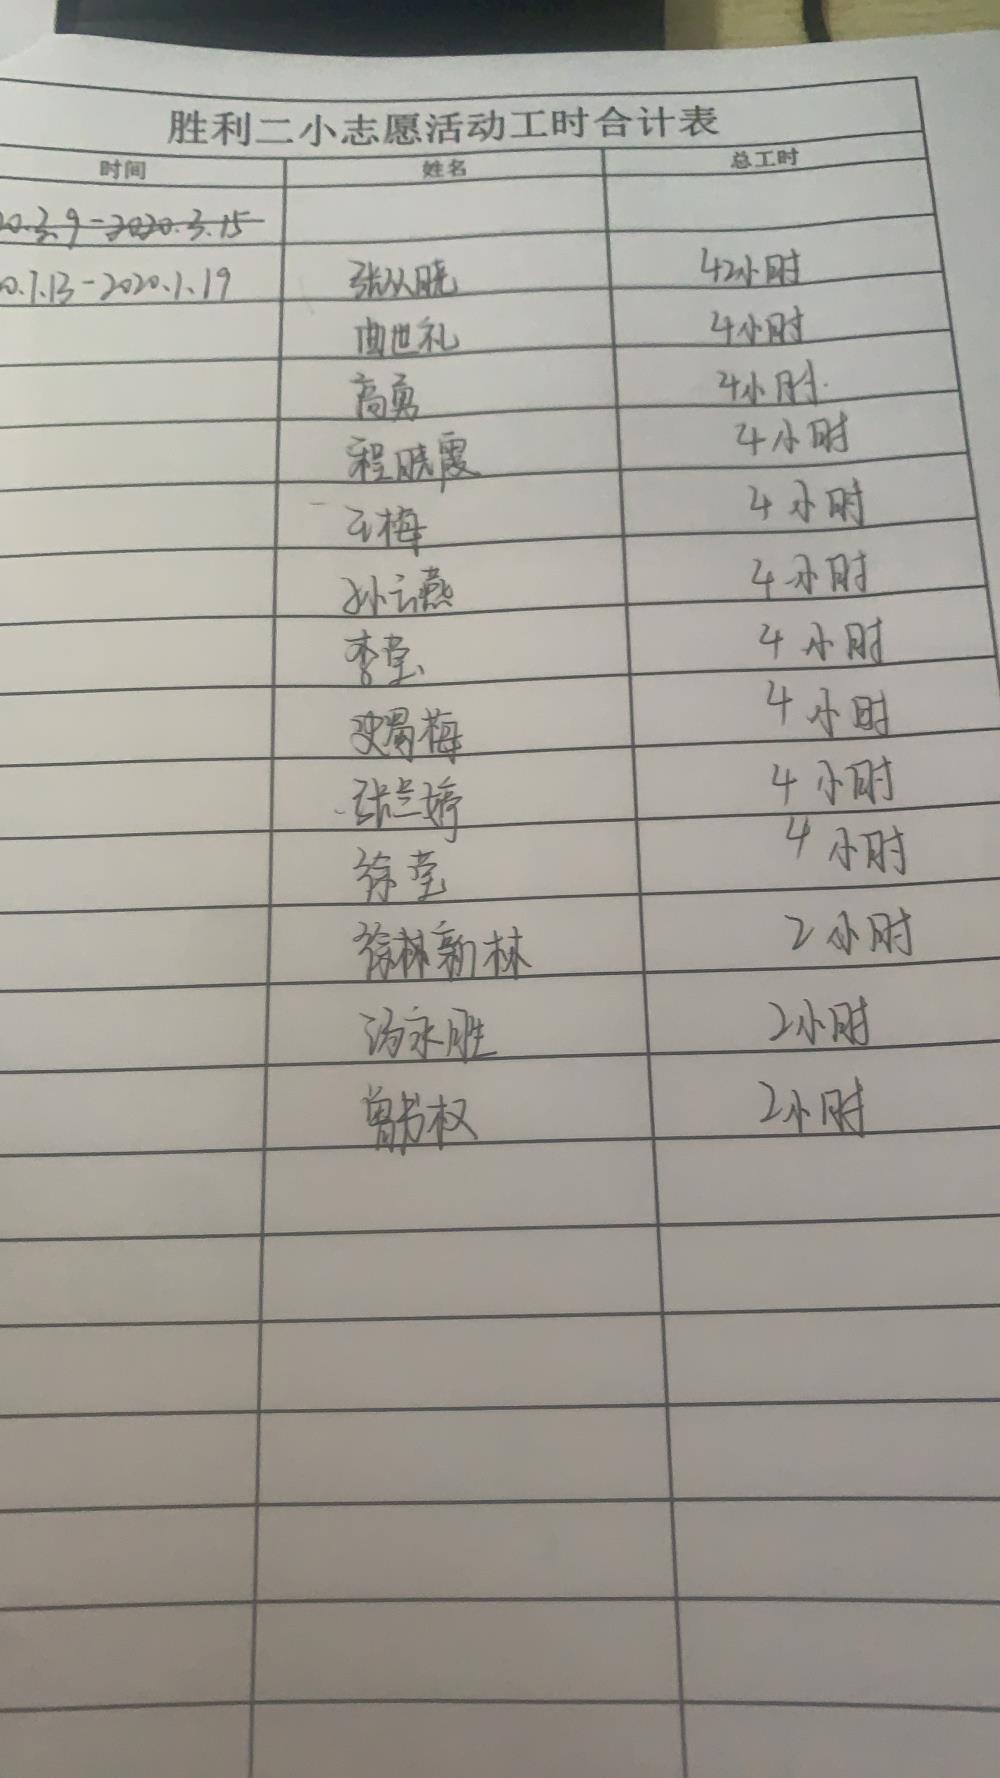 胜利二小志愿活动工时合计表
时间 姓名 总工时
20.3.9-2020.3.15
20.1.13-2020.1.19 张从晓 42小时
曲世礼 4小时
高勇 4小时
程晓霞 4小时
王梅 4小时
孙云燕 4小时
李莹 4小时
史蜀梅 4小时
张兰婷 4小时
徐莹 4小时
徐林新林 2小时
汤永胜 2小时
曾书权 2小时